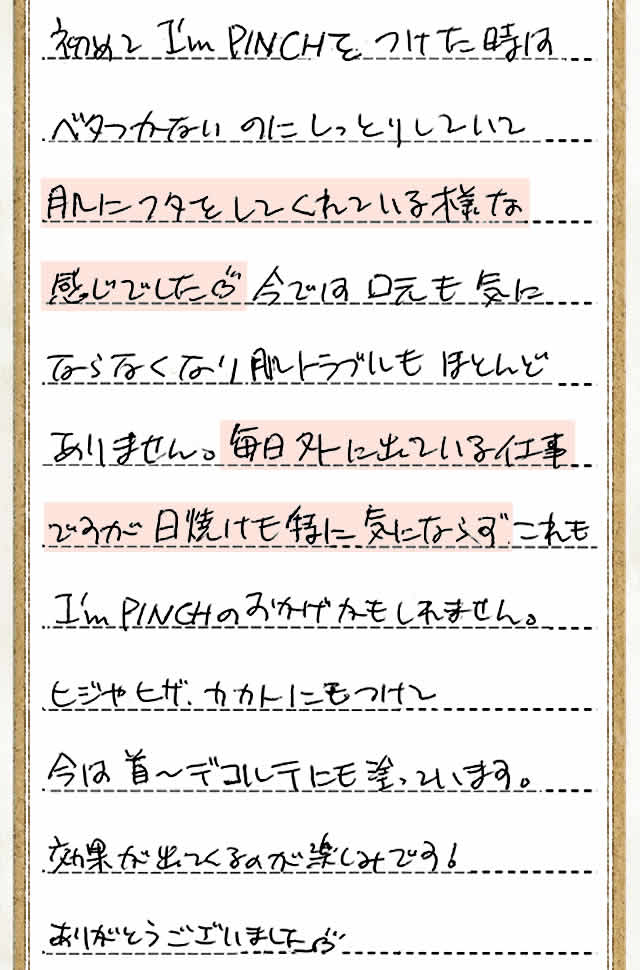 初めて I'm PINCHを つけた時は
ベタつかない のにしっとりしていて
肌にフタをしてくれている様な
感じでした 今では 口元も 気に
ならなくなり 肌トラブルも ほとんど
ありません。毎日 外に出ている仕事
ですが 日焼けも 特に 気にならず これも
I'm PINCHのおかげかもしれません。
ヒジやヒザ、カカトにもつけて
今は 首〜デコルテにも塗っています。
効果が出てくるのが楽しみです!
ありがとうございました